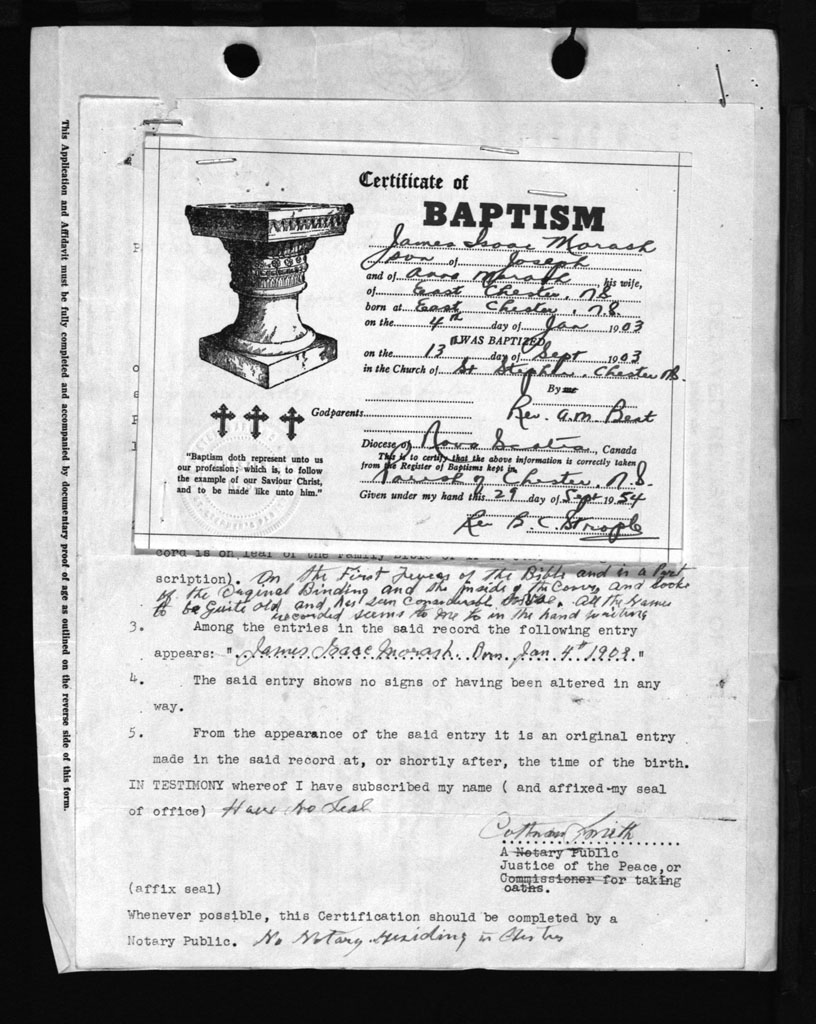 This Application and Affidavit must be fully completed and accompanied by documentary proof of age as outlined on the reverse side of this form.
Certificate of
BAPTISM
James Isaac Morash
son of Joseph
and of Anna Morash his wife,
of East Chester, N.S.
born at East Chester, N.S.
on the 4th day of Jan 1903
WAS BAPTIZED
on the 13 day of Sept 1903
in the Church of St Stephen, Chester N.S.
By me
Rev. A.M. Bent
Godparents
Diocese of Nova Scotia, Canada
This is to certify that the above information is correctly taken
from the Register of Baptisms kept in
Parish of Chester, N.S.
Given under my hand this 29 day of Sept 1954
Rev B. C.
"Baptism doth represent unto us
our profession; which is, to follow
the example of our Saviour Christ,
and to be made like unto him."
cord is on leaf of the Family Bible
scription). On the First of the Bible and is a Part
of the Original Binding and the Inside of the Cover, and looks
to be Quite old and has Considerable All the Names
recorded seems to me to in the hand writing
3. Among the entries in the said record the following entry
appears: "James Isaac Morash. Born Jan 4th 1903."
4. The said entry shows no signs of having been altered in any
way.
5. From the appearance of the said entry it is an original entry
made in the said record at, or shortly after, the time of the birth.
IN TESTIMONY whereof I have subscribed my name ( and affixed-my seal
of office) Have No Seal
Smith
A Notary Public
Justice of the Peace,or
Commissioner for taking
oaths.
(affix seal)
Whenever possible, this Certification should be completed by a
Notary Public. No Notary residing in Chester